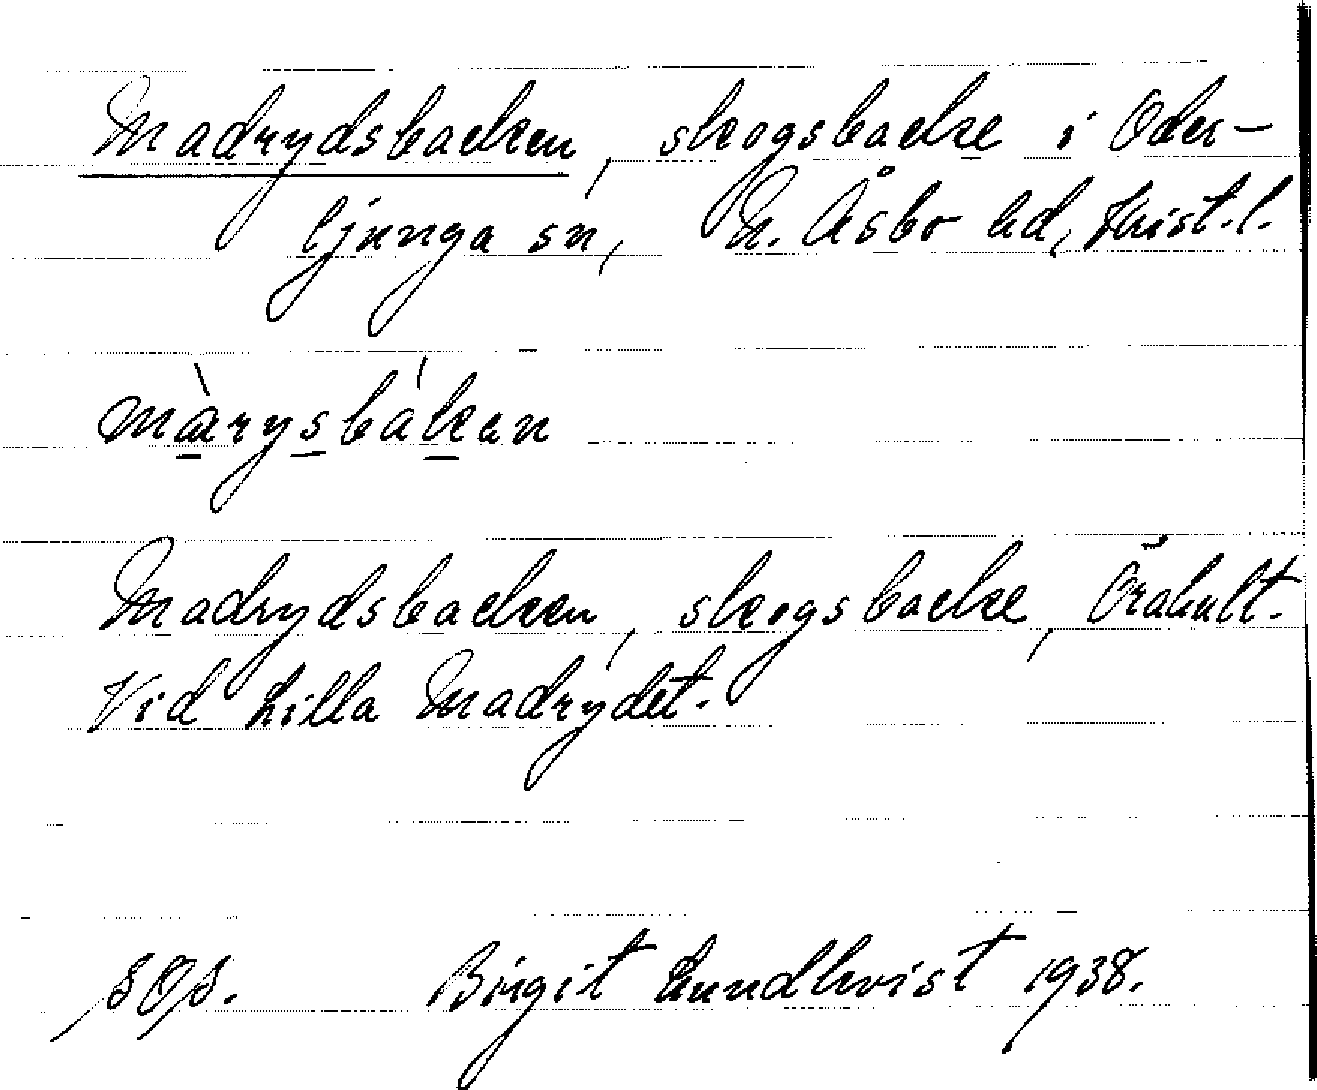 Madrydsbacken, skogsbacke i Oder-
ljunga sn, N. Åsbo hd, Krist. l.
màrysbákan
Madrydsbacken, skogsbacke, Örahult.
Vid Lilla Madrydet.
Birgit Lundkvist 1938.